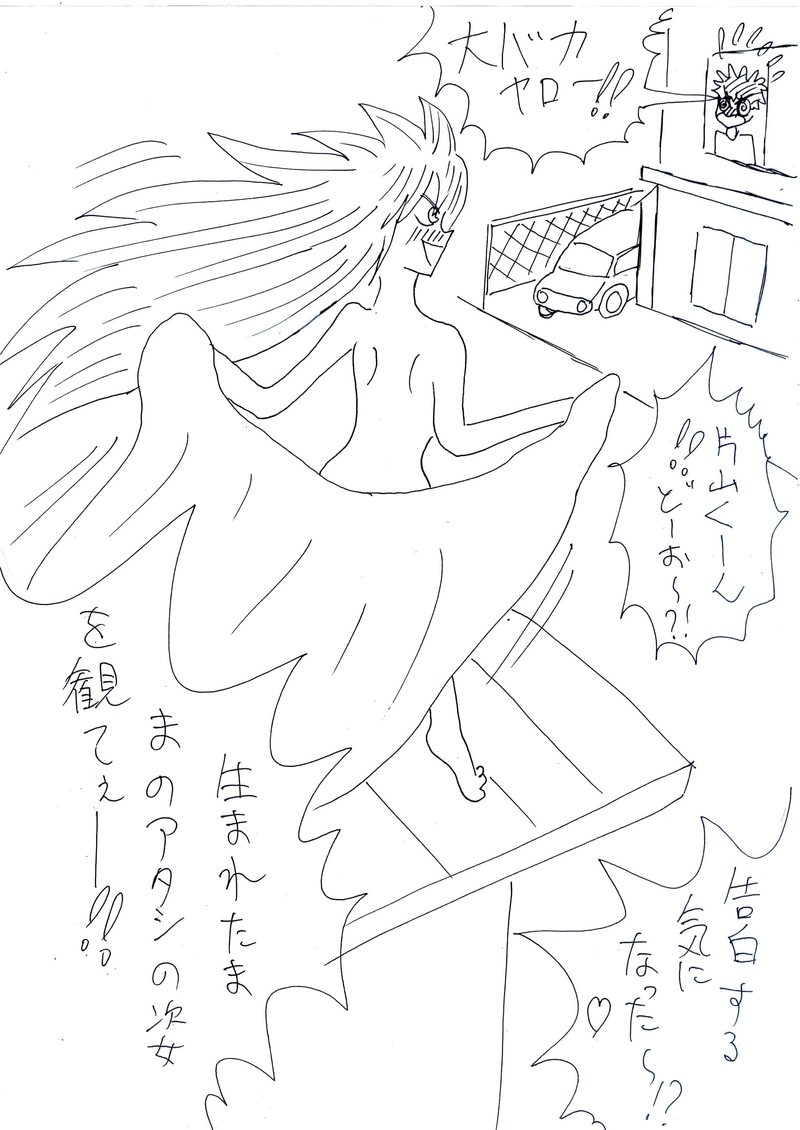 大バカ
ヤロー!!
片山くーん
!!どーお〜?!
告白する
気に
なった〜!?
♡
生まれたま
まのアタシの姿
を観てぇー!!